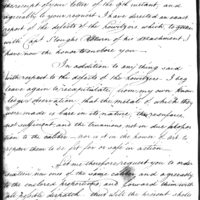 the receipt of your letter of the 9th instant; and
agreeably to your request I have directed an exact
report of the defects of the howitzers which is given
with Capt. Return of his detachment, I
have now the honor to enclose you
In addition to any thing said
with respect to the defects of the howitzers. I beg
leave again to recapitulate, from my own know-
ledge & observation; that the metal of which they
were made is base in its nature, the
not sufficient, and the trunnions not in due propor-
tion to the caliber. nor is it in the power of art to
repair them so as fit for or safe in action.
Let me therefore request you to order
one of the same calibre, and agreeably to
the enclosed proportions, and forward them with
all possible despatch. the present